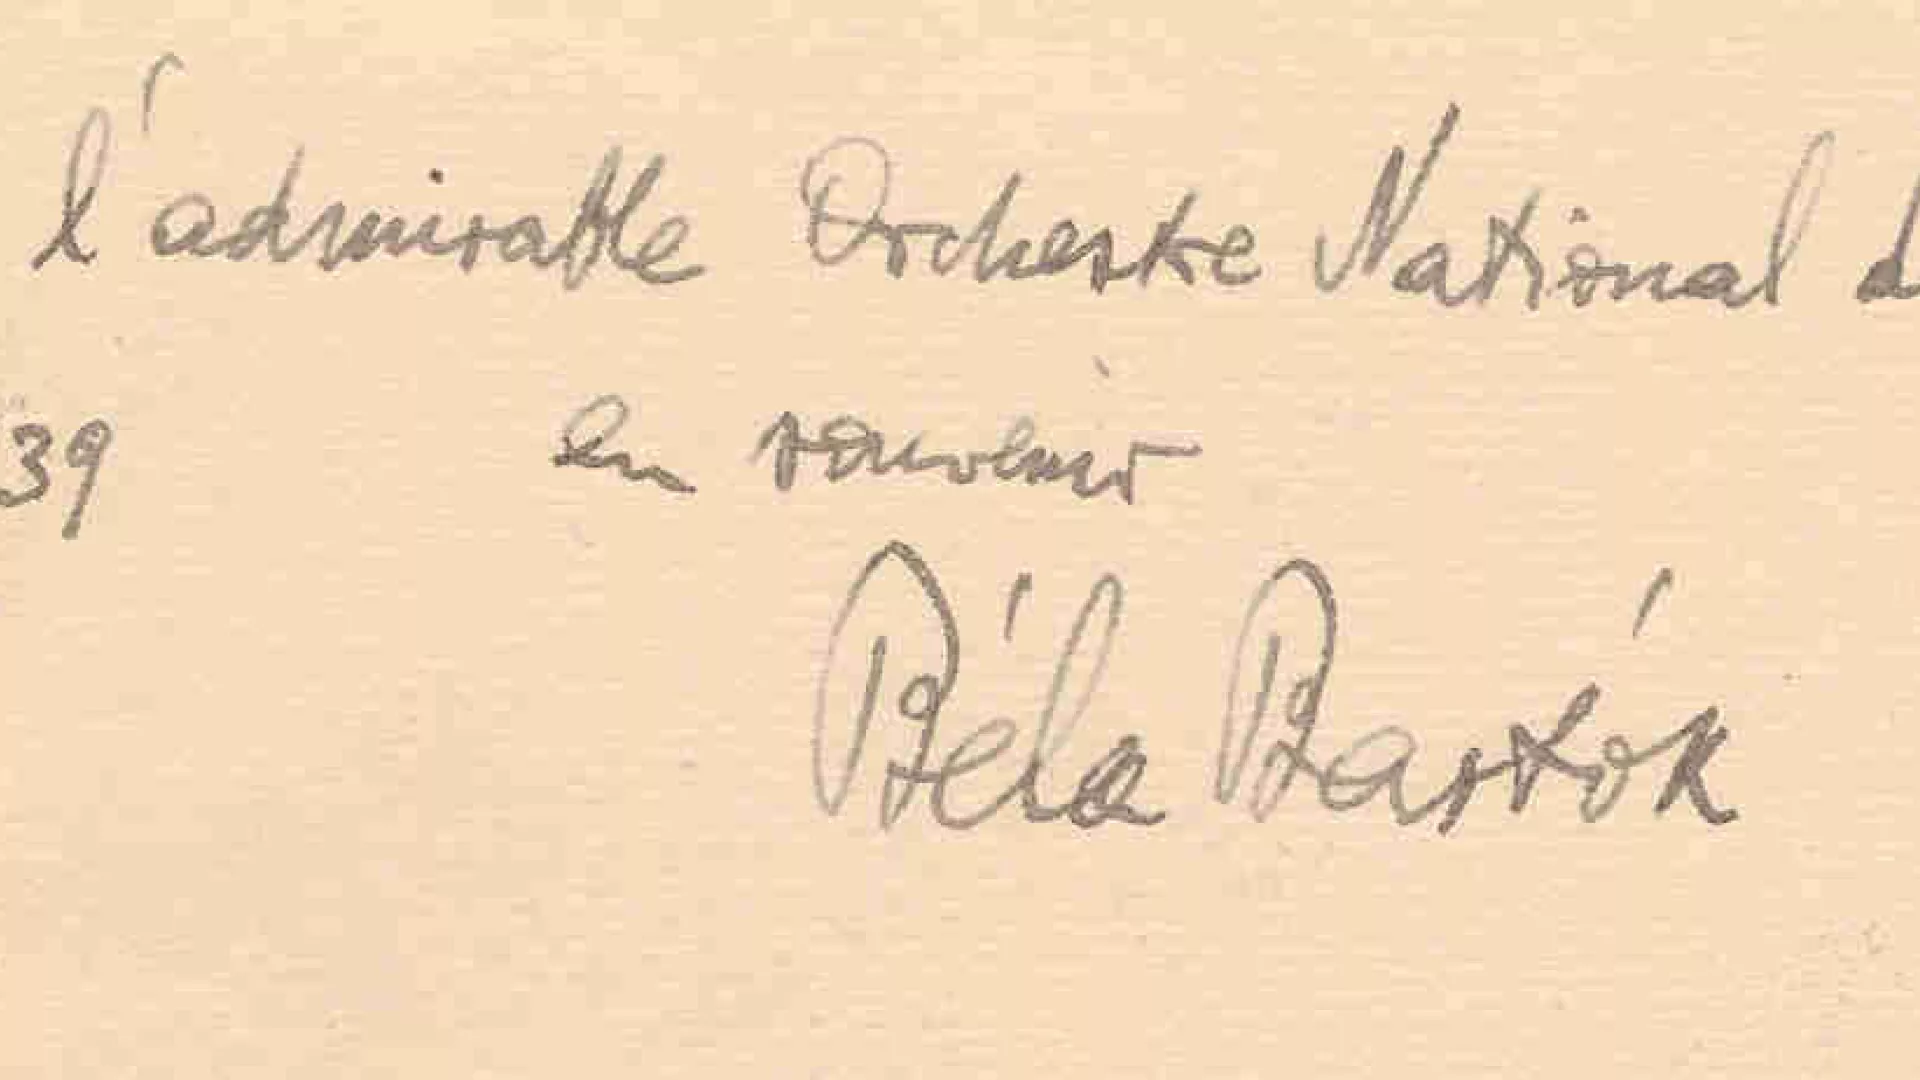 l'admirable Orchestre National d
39 en souvenir
Béla Bartók